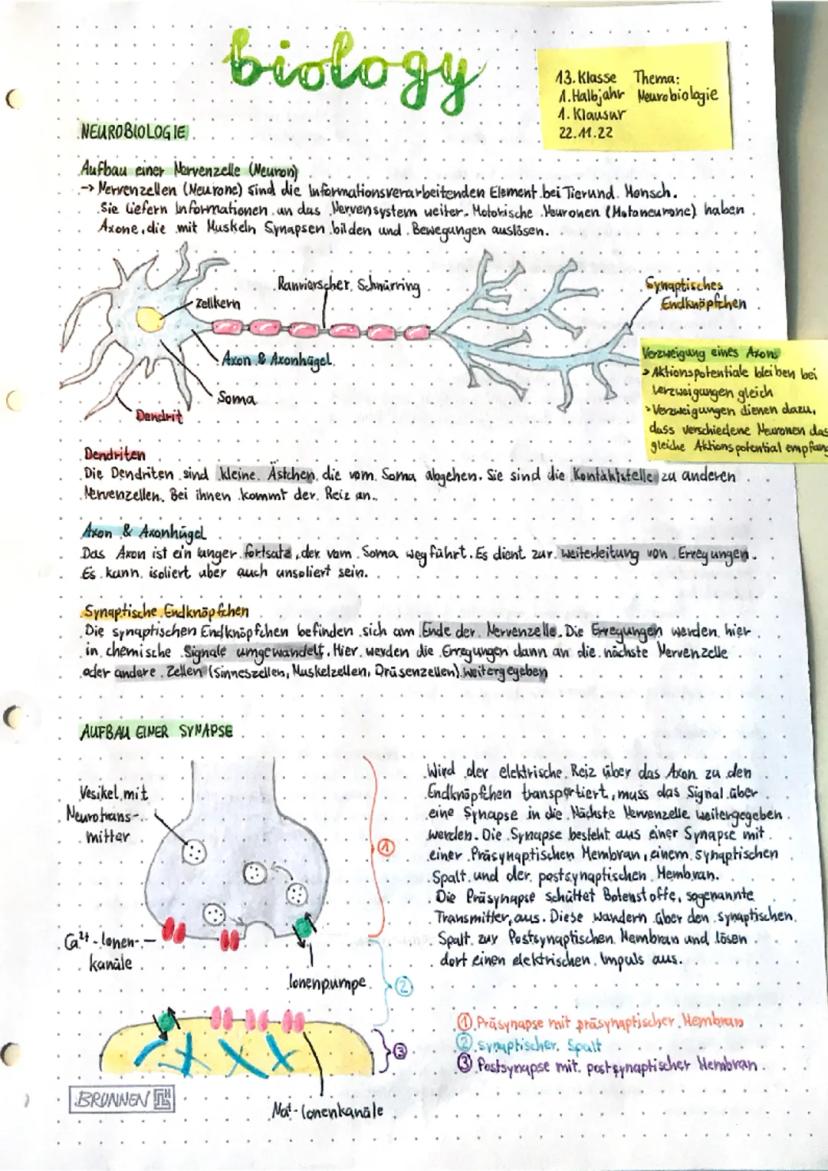 biology
13. Klasse Thema:
1. Halbjahr Neurobiologie
1. Klausur
22.11.22
NEUROBIOLOGIE
Aufbau einer Nervenzelle (Neuron)
→ Nervenzellen (Neurone) sind die Informationsverarbeitenden Element bei Tier und Mensch.
Sie liefern Informationen an das Nervensystem weiter. Motorische Neuronen (Motoneurone) haben
Axone, die mit Muskeln Synapsen bilden und Bewegungen auslösen.
Zellkern
Ranvierscher Schnürring
Synaptisches
Endknöpfchen
Axon & Axonhügel
Soma
Dendrit
Verzweigung eines Axons
> Aktionspotentiale bleiben bei
Verzweigungen gleich
> Verzweigungen dienen dazu,
dass verschiedene Neuronen das
gleiche Aktionspotential empfan
Dendriten
Die Dendriten sind kleine Ästchen, die vom Soma abgehen. Sie sind die Kontaktstelle zu anderen
Nervenzellen. Bei ihnen kommt der Reiz an.
Axon & Axonhügel
Das Axon ist ein langer fortsatz, der vom Soma weg führt. Es dient zur weiterleitung von Erregungen.
Es kann isoliert aber auch unsoliert sein.
Synaptische Endknöpfchen
Die synaptischen Endknöpfchen befinden sich am Ende der Nervenzelle. Die Erregungen werden hier
in chemische Signale umgewandelt. Hier werden die Erregungen dann an die nächste Nervenzelle
oder andere Zellen (Sinneszellen, Muskelzellen, Drüsenzellen) weitergegeben
AUFBAU EINER SYNAPSE
Vesikel mit
Neurotrans-
mitter
Ca²⁺-Ionen-
kanäle
Ionenpumpe
①
②
③
Na⁺-Ionenkanäle
Wird der elektrische Reiz über das Axon zu den
Endknöpfchen transportiert, muss das Signal über
eine Synapse in die Nächste Nervenzelle weitergegeben
werden. Die Synapse besteht aus einer Synapse mit
einer Präsynaptischen Membran, einem synaptischen
Spalt und der postsynaptischen Membran.
Die Präsynapse schüttet Botenstoffe, sogenannte
Transmitter, aus. Diese wandern über den synaptischen
Spalt zur Postsynaptischen Membran und lösen
dort einen elektrischen Impuls aus.
① Präsynapse mit präsynaptischer Membran
② synaptischer Spalt
③ Postsynapse mit postsynaptischer Membran
BRUNNEN